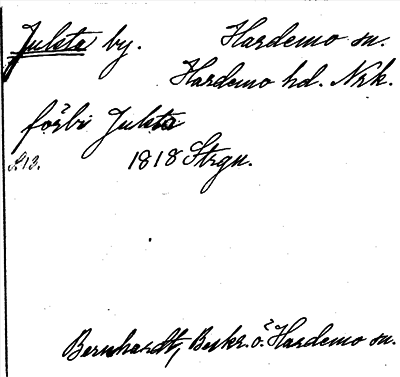 Julsta by. Hardemo sn.
Hardemo hd. Nrk.
förbi Julsta
S. 13. 1818 Strgn.
Bernhardt, Beskr. ö. Hardemo sn.